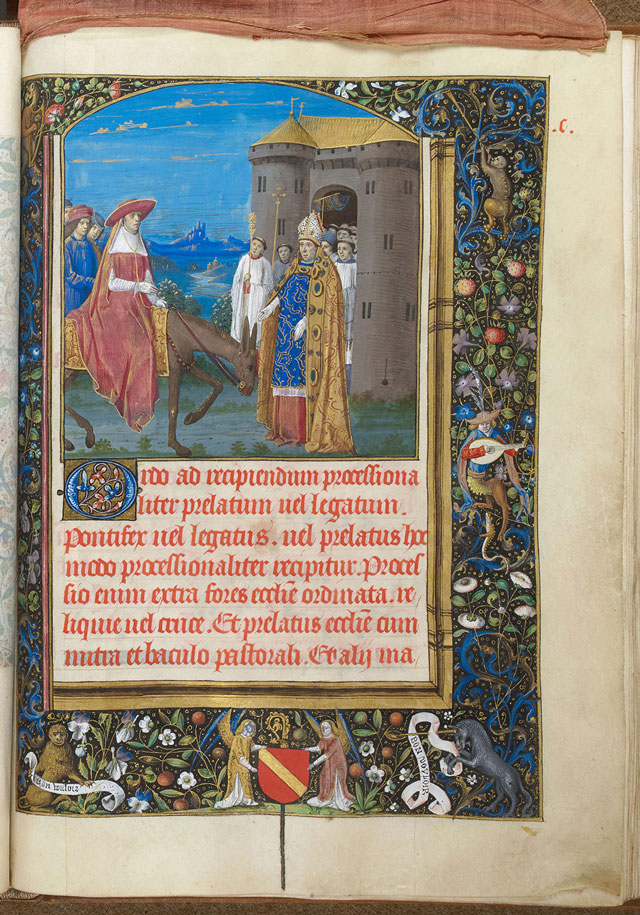 .c.
Ordo ad recipiendum processiona
liter prelatum uel legatum.
Pontifex uel legatus. uel prelatus hoc
modo processionaliter recipitur. Proces
sio enim extra fores ecclie ordinata. re
liquie uel cruce. Et prelatus ecclie cum
mitra et baculo pastorali. Et alij ma
Bon